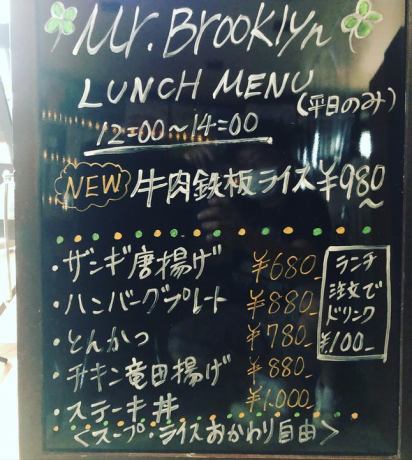 Mr. Brooklyn
LUNCH MENU
(平日のみ)
12:00〜14:00
NEW 牛肉鉄板ライス ¥980〜
・ザンギ唐揚げ ¥680-
・ハンバーグプレート ¥880-
・とんかつ ¥780-
・チキン竜田揚げ ¥880-
・ステーキ丼 ¥1.000-
<スープ・ライスおかわり自由>
ランチ
注文で
ドリンク
¥100-